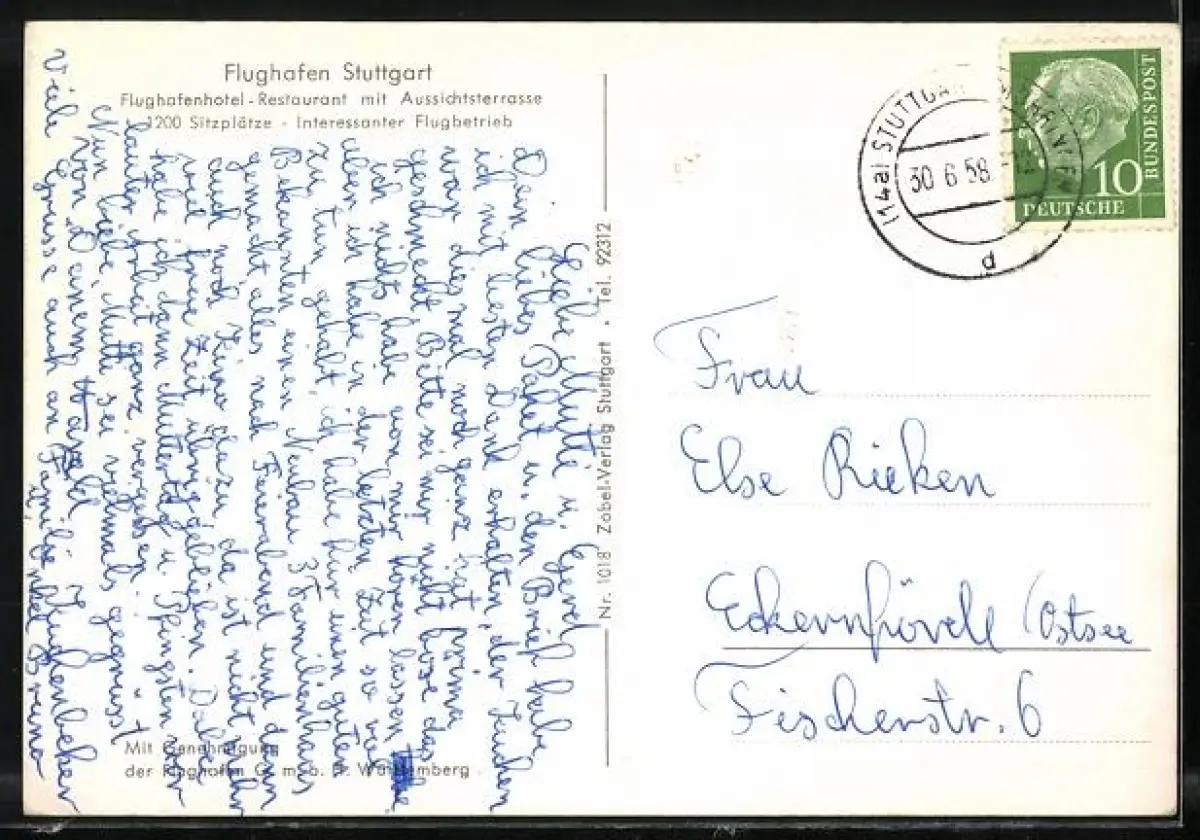 Flughafen Stuttgart
Flughafenhotel - Restaurant mit Aussichtsterrasse
1200 Sitzplätze - Interessanter Flugbetrieb
Liebe Mutti u. Gerd
Dein liebes Paket u. den Brief habe
ich mit besten Dank erhalten, der Kuchen
war diesmal noch ganz prima
geschmeckt Bitte sei mir nicht böse das
ich nichts habe von mir hören lassen
aber ich habe in der letzten Zeit so viel
zu tun gehabt ich habe für einen guten
Bekannten einen Neubau 3 Familienhaus
gemacht alles nach Feierabend und dann
auch noch Kino dazu da ist nicht mehr
viel freue Zeit übrig geblieben. Dabei
habe ich dann Muttertag u. Pfingsten vor
lauter Arbeit ganz vergessen
Nun liebe Mutti sei vielmals gegrüsst
von Deinem
Viele Grüsse auch an Familie
Bruno
Mit Genehmigung
der Flughafen G. m. b. H. Württemberg
Nr. 1018 Zobel-Verlag Stuttgart • Tel. 92312
(14a) STUTTGART
30.6.58
d
10
DEUTSCHE
BUNDESPOST
Frau
Else Rieken
Eckernförde (Ostsee
Fischerstr. 6